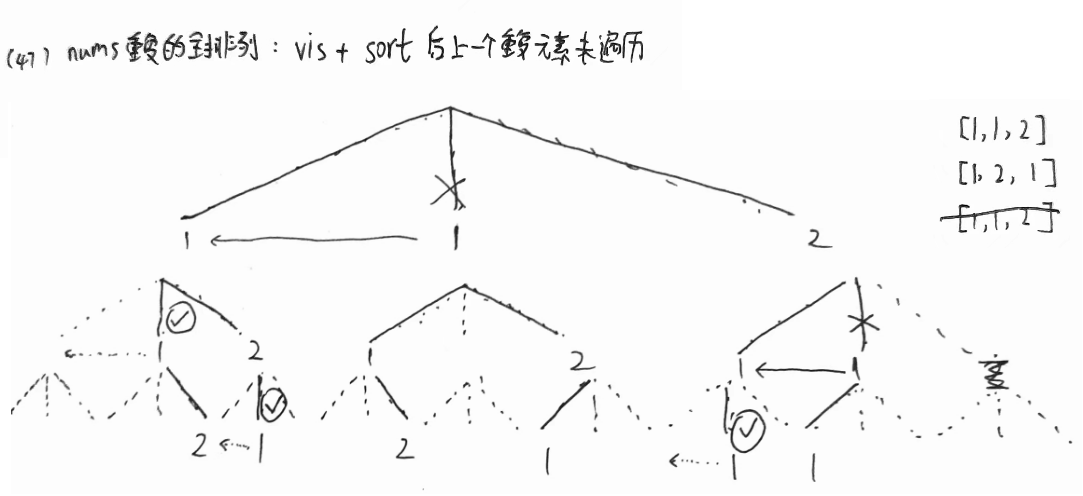 (47) nums重复的全排列：vis + sort 后上一个重复元素未遍历
[1,1,2]
[1,2,1]
[1,1,2]
1
1
2
1
2
1
2
1
1
2
1
2
1
1
1